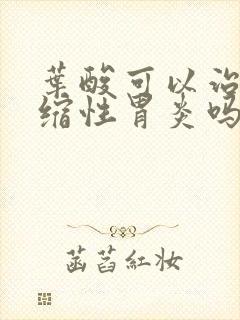 葉酸可以治
缩性胃炎吗
菡萏紅妆